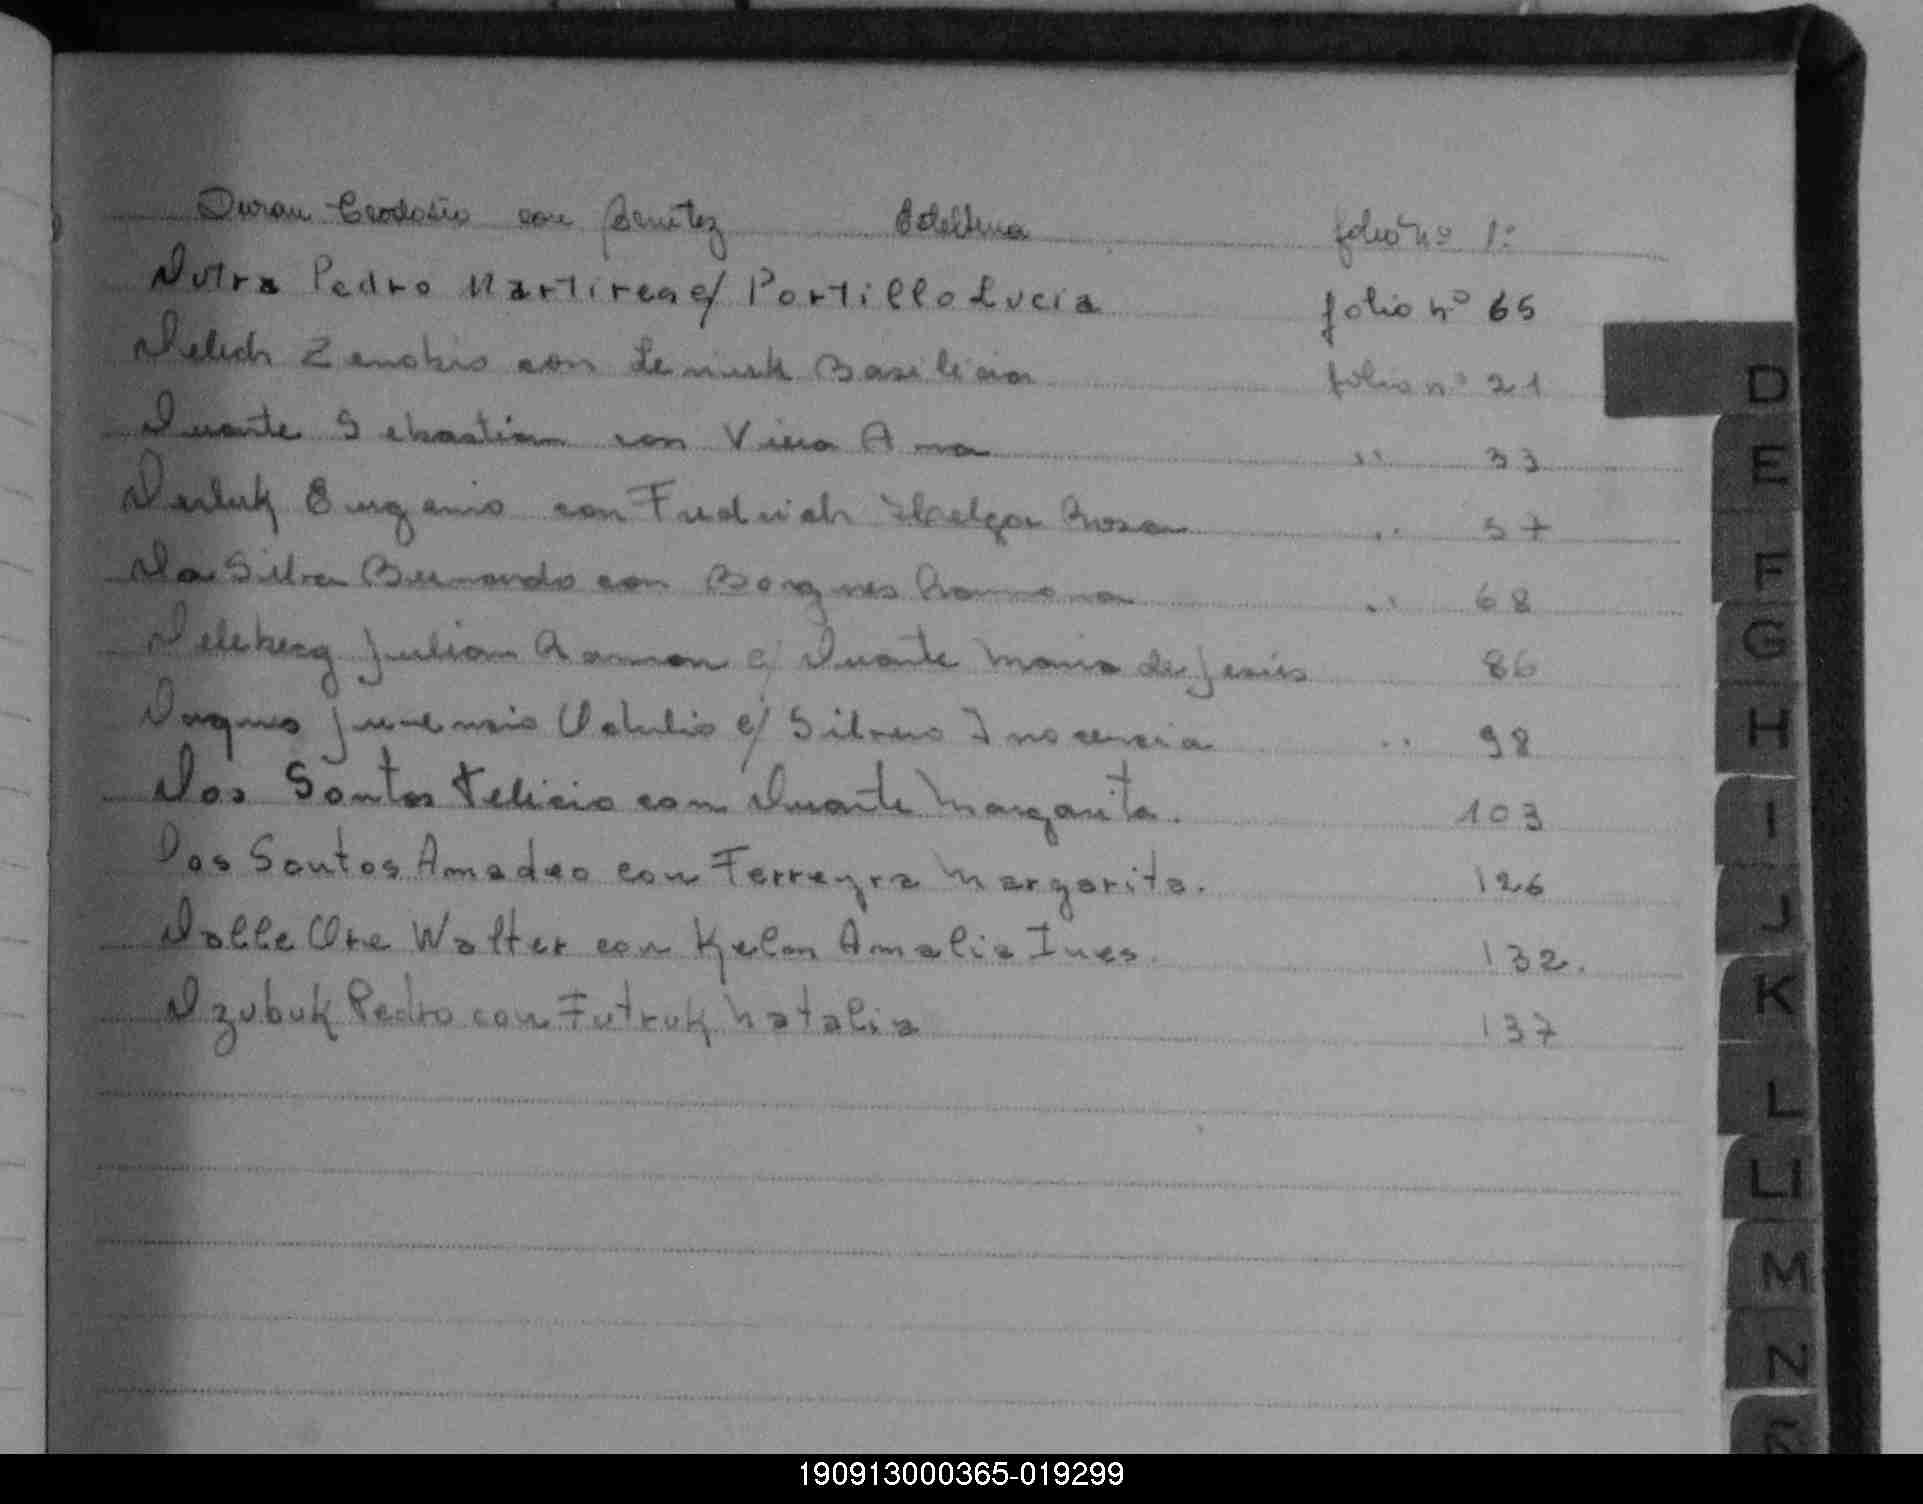 Duran Teodosio con Benitez folio nº 1:
Dutra Pedro Martires c/ Portillo Lucia folio nº 65
Zenobio con Basilicia folio nº 21
Duarte Sebastian con Viera Ana " 33
Eugenio con Fredrich Helga Rosa " 57
Da Silva Bernardo con Borgnes Ramona " 68
Julian Ramon c/ Duarte Maria de Jesús 86
Juvensio c/ Silvero Inocencia " 98
Dos Santos Felicio con Duarte Margarita. 103
Dos Santos Amadeo con Ferreyra Margarita. 126
Dalle Ore Walter con Kelm Amalia Ines. 132.
Dzubuk Pedro con Futruk Natalia 137
D
E
F
G
H
I
J
K
L
LL
M
N
190913000365-019299